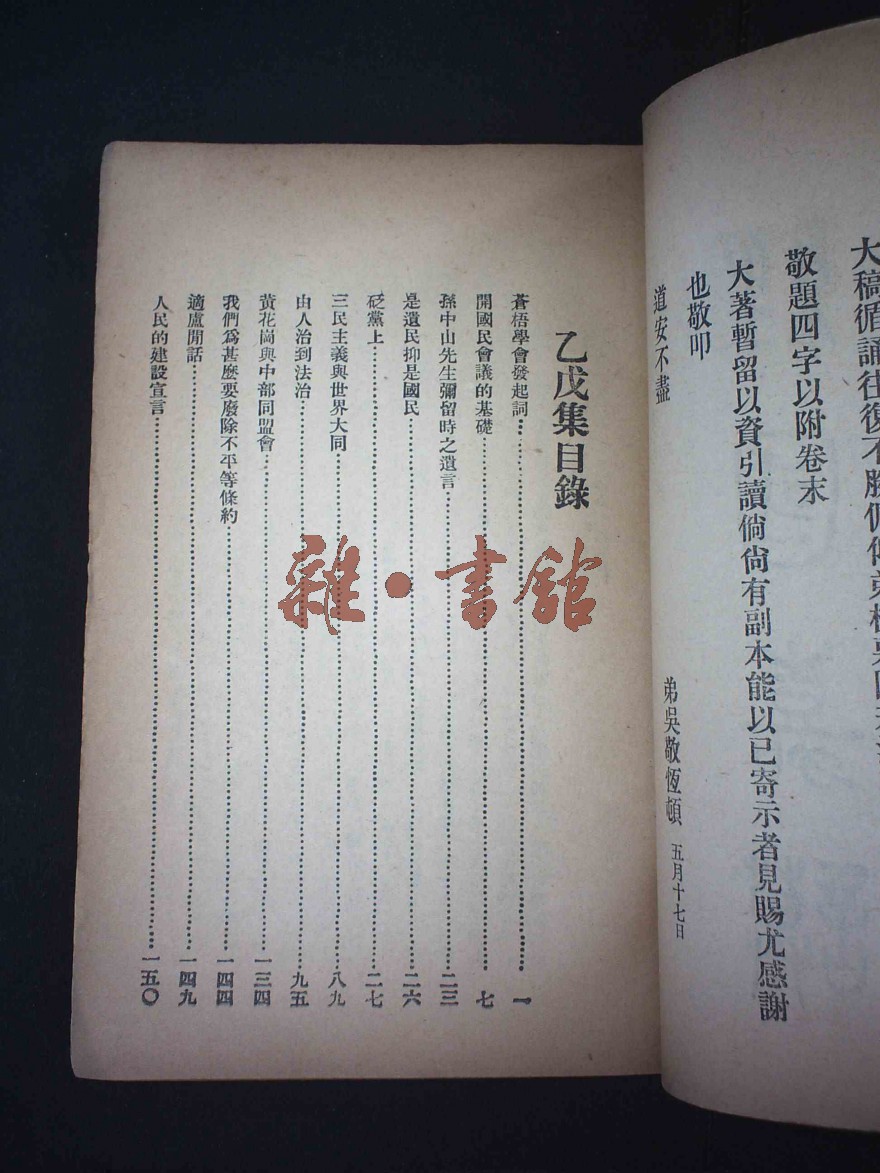 大稿循誦往復不勝
敬題四字以附卷末
大著暫留以資引讀倘尙有副本能以已寄示者見賜尤感謝
也敬叩
道安不盡
弟吳敬恆頓 五月十七日
乙戊集目錄
蒼梧學會發起詞 一
開國民會議的基礎 七
孫中山先生彌留時之遺言 二三
是遺民抑是國民 二六
砭黨上 二七
三民主義與世界大同 八九
由人治到法治 九五
黃花崗與中部同盟會 一三四
我們爲甚麼要廢除不平等條約 一四四
適盧閒話 一四九
人民的建設宣言 一五〇
雜·書館